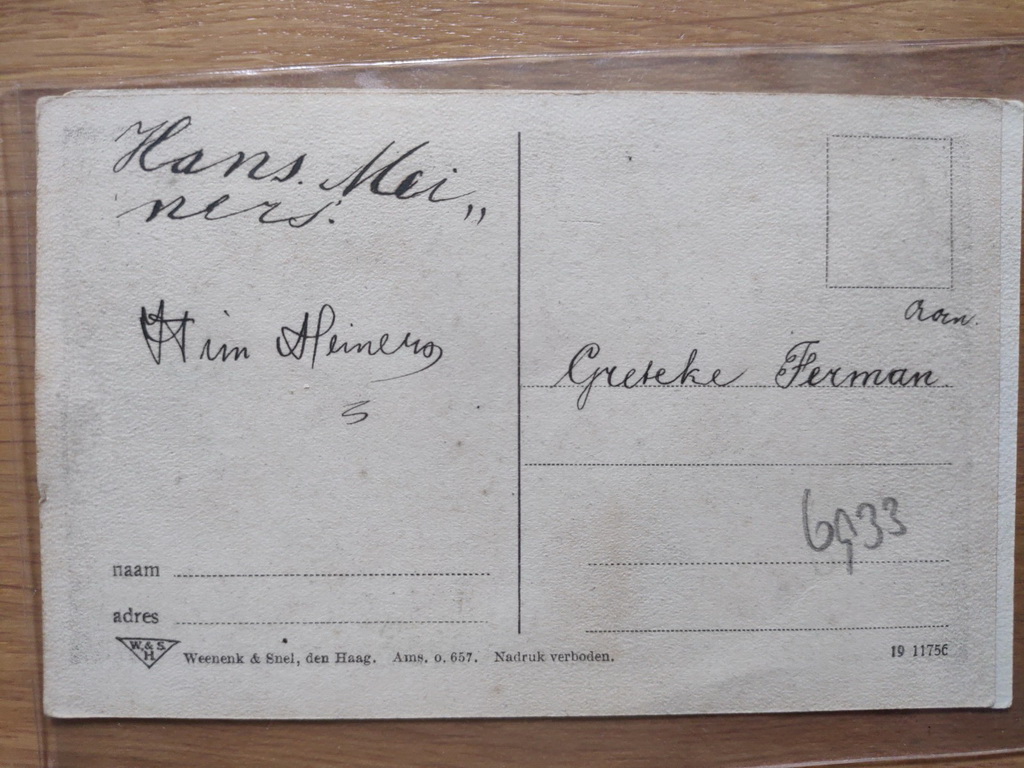 Hans. Mei„
ners.
Wim Meiners
Aan.
Greteke Ferman
naam
adres
W. & S.
H.
Weenenk & Snel, den Haag. Ams. o. 657. Nadruk verboden.
19 11756